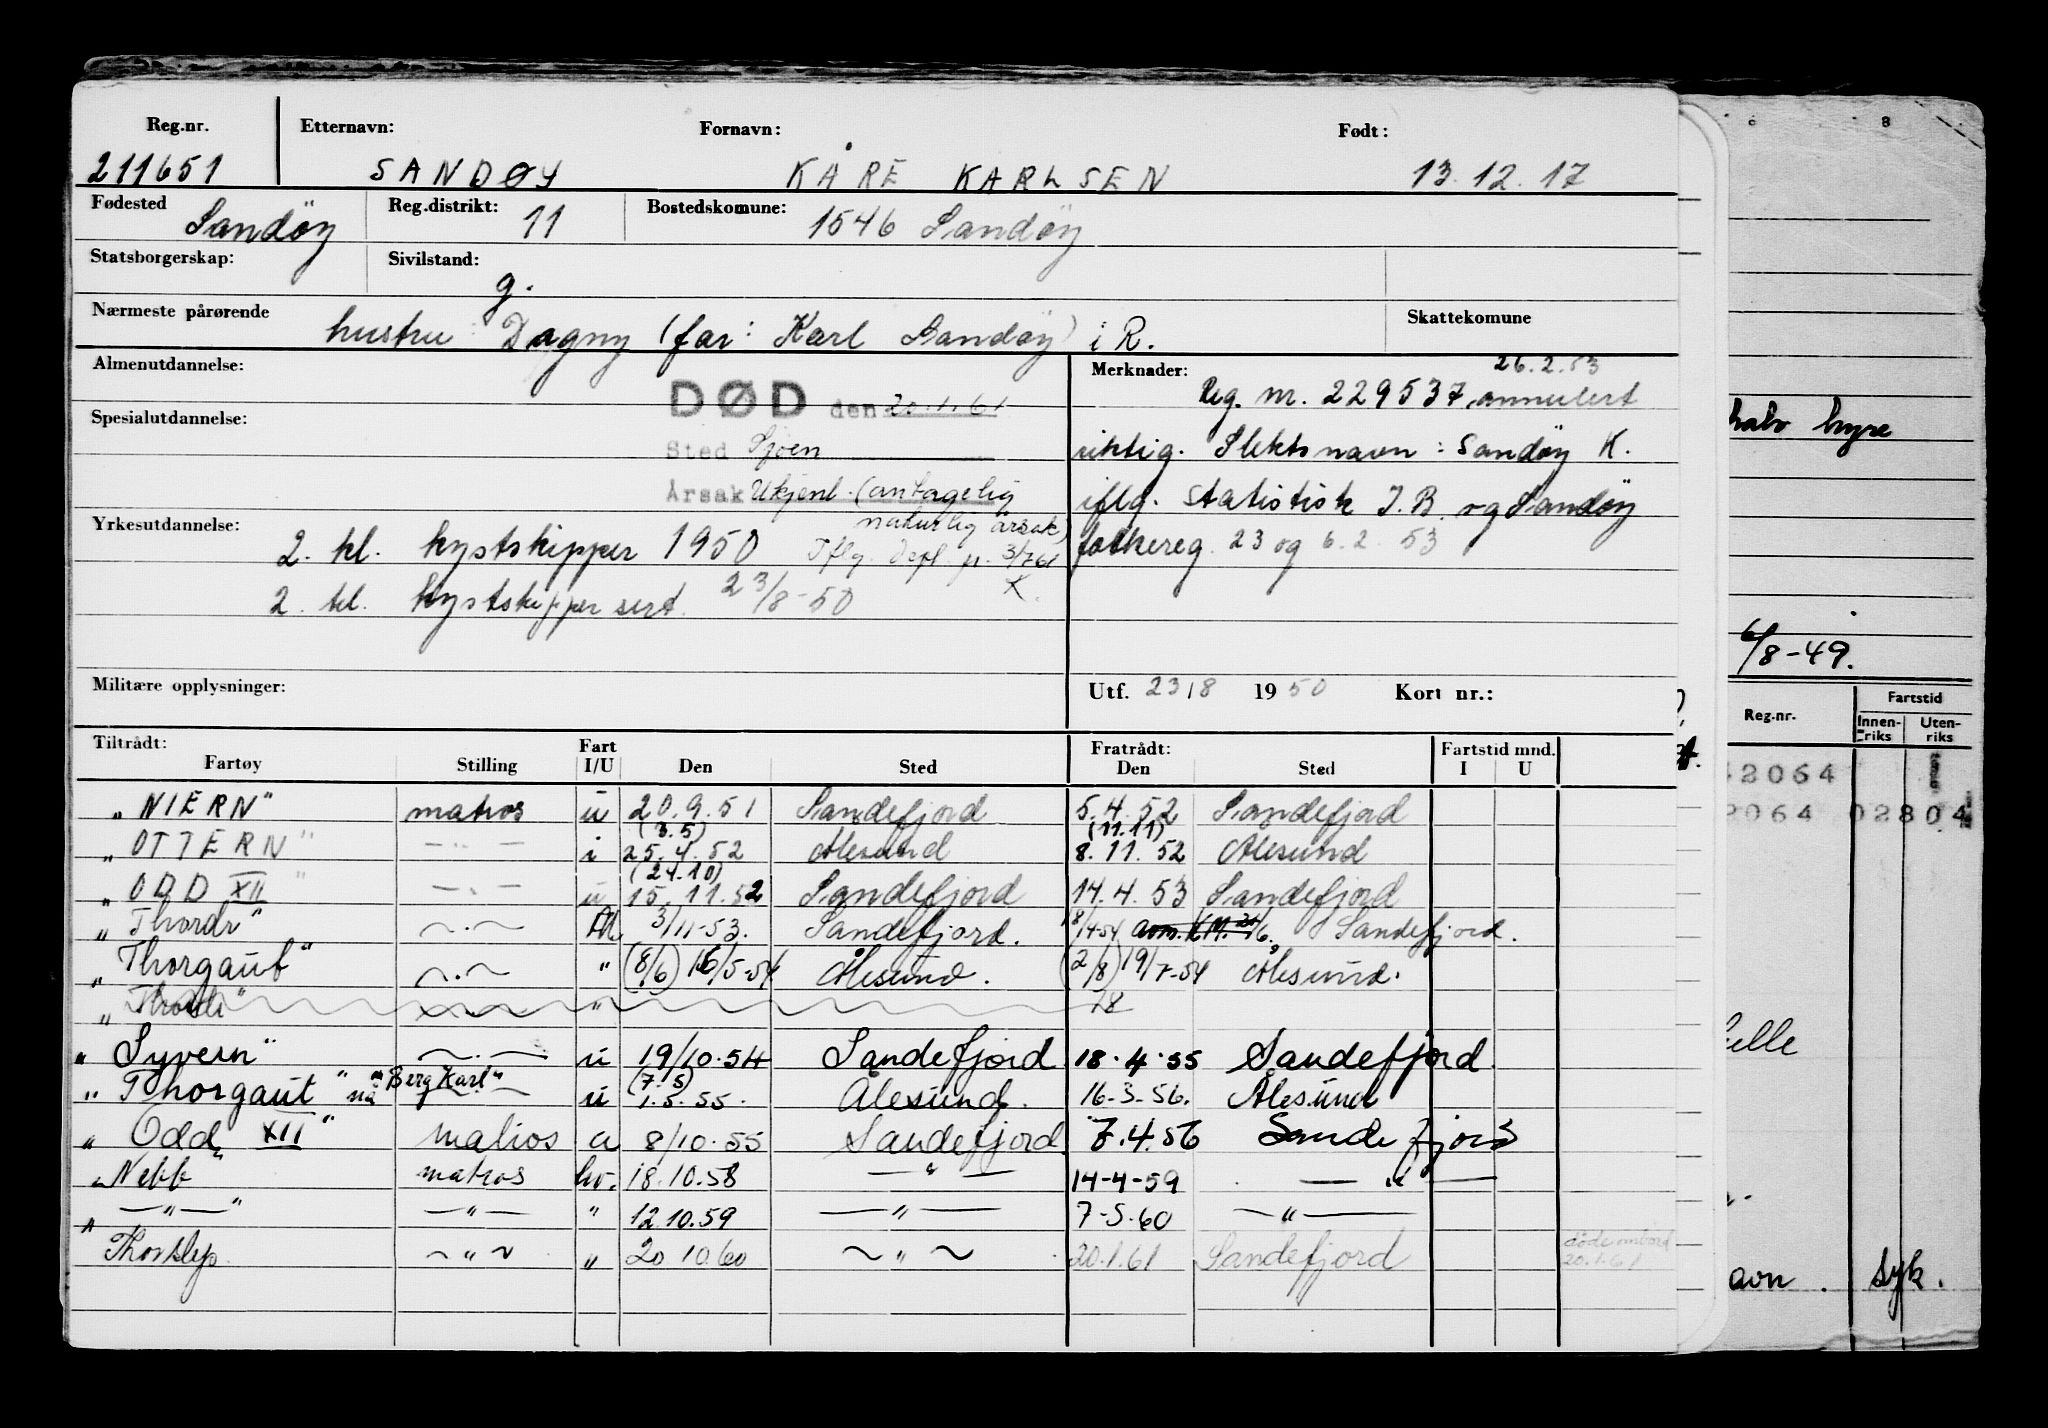 Reg.nr. Etternavn: Fornavn: Født:
211651 SANDØY KÅRE KARLSEN 13.12.17
Fødested Sandöy Reg.distrikt: 11 Bostedskomune: 1546 Sandöy
Statsborgerskap: Sivilstand: g.
Nærmeste pårørende hustru: Dagny (far: Karl Sandöy) i R. Skattekomune
Almenutdannelse:
DØD den 20.1.61
Spesialutdannelse:
Sted Sjøen
Årsak Ukjent. (antagelig
naturlig årsak)
Yrkesutdannelse:
2. kl. kystskipper 1950
Iflg. 3/7 61
K.
2. kl. kystskipper sert. 23/8-50
Merknader: 26.2.53
Reg. nr. 229537, annulert
riktig. Slektsnavn: Sandöy K.
iflg. Statistisk I.B. og Sandöy
folkereg. 23 og 6.2.53
Militære opplysninger:
Utf. 23/8 1950 Kort nr.:
Tiltrådt: Fart Fratrådt: Fartstid mnd.
Fartøy Stilling I/U Den Sted Den Sted I U
„NIERN" matros u 20.9.51 Sandefjord 5.4.52 Sandefjord
(3.5) (11.11)
„OTTERN" —.. — i 25.4.52 Ålesund 8.11.52 Ålesund
(24.10)
„ODD XII" —.. — u 15.11.52 Sandefjord 14.4.53 Sandefjord
„Thordr" ~.~ 3/11-53. Sandefjord. 18/4-54 Sandefjord.
„Thorgaut" ~.~ " (8/6) 16/5-54 Ålesund. (2/8) 19/7-54 Ålesund.
„ " " 18
„Syvern" ~. — u 19/10-54 Sandefjord 18.4.55 Sandefjord.
"Berg Karl" (7.5)
„Thorgaut" nå — u 1.5.55. Ålesund. 16-3-56. Ålesund
„Odd XII" matros a 8/10-55 Sandefjord. 7.4.56 Sandefjord
„Nebb" matros hv. 18.10.58 — " — 14-4-59 — " —
„ — " — " — " — " 12.10.59 — " — 7-5-60 — " —
Thorslep. ~ " ~ " 20.10.60 ~ " ~ 20.1.61 Sandefjord døde ombord
20.1.61
8
halv hyre
6/8-49.
Reg.nr. Fartstid
Innen-riks Uten-riks
2064
2064 02804
avn. syk.